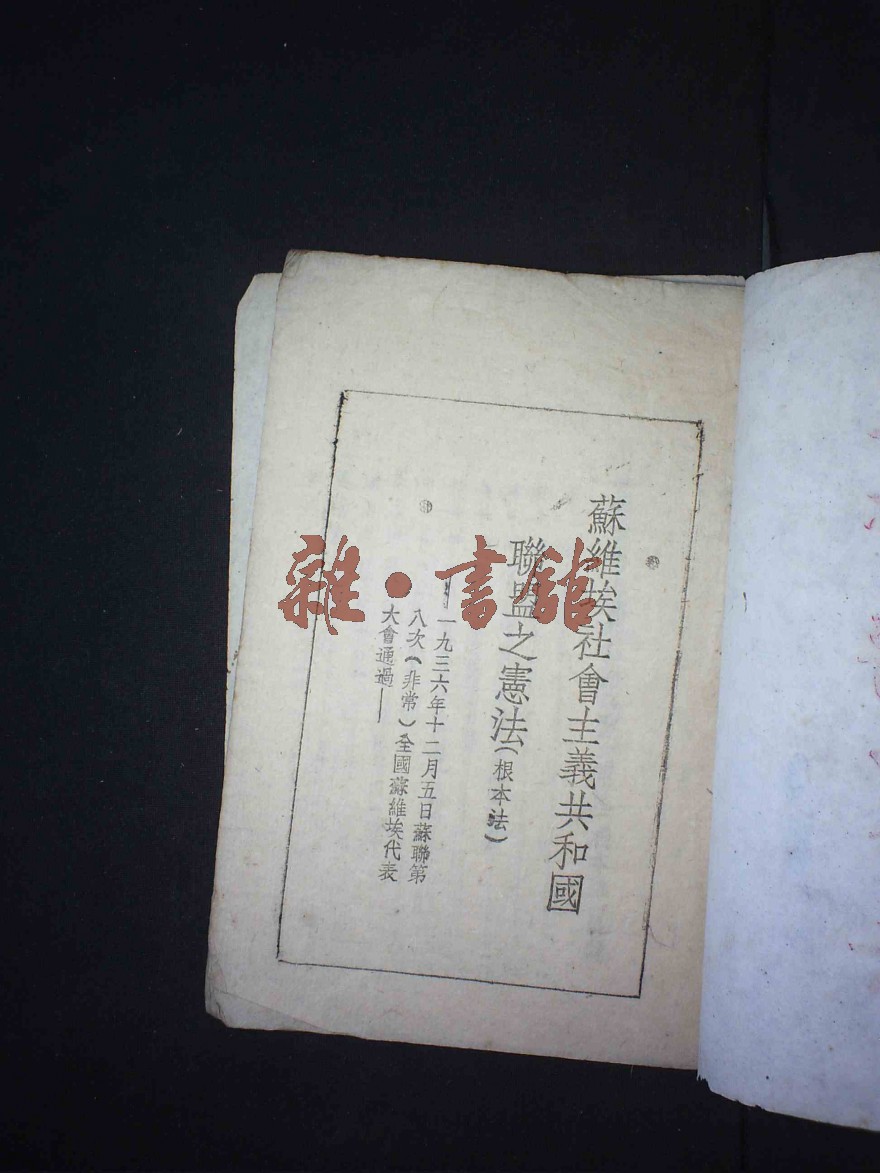 蘇維埃社會主義共和國
聯盟之憲法（根本法）
——一九三六年十二月五日蘇聯第
八次（非常）全國蘇維埃代表
大會通過——
雜·書館